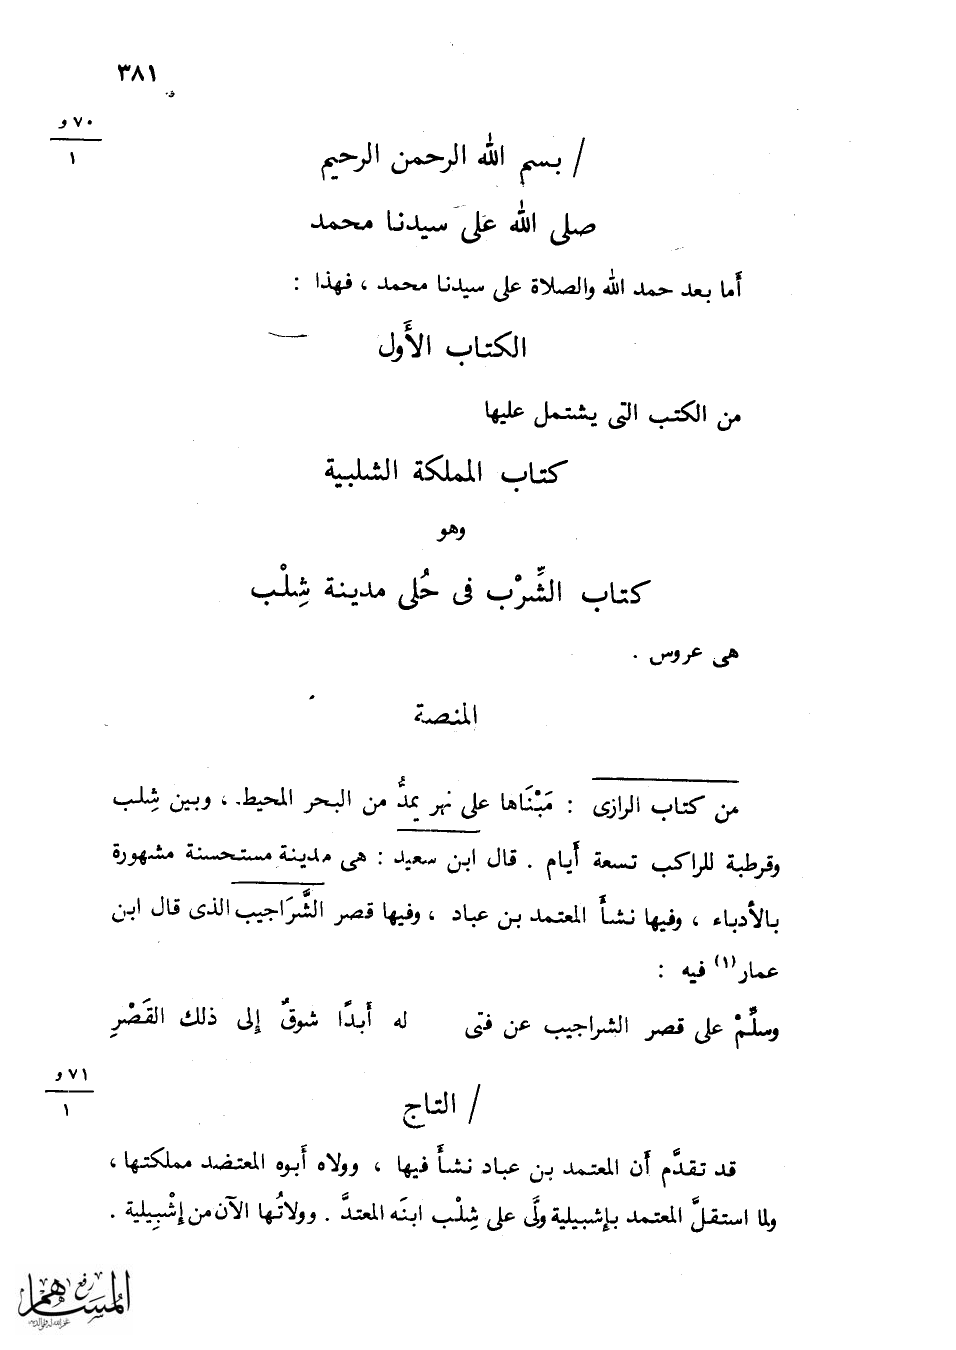 ٣٨١
٧٠ و
١
/ بسم الله الرحمن الرحيم
صلى الله على سيدنا محمد
أما بعد حمد الله والصلاة على سيدنا محمد ، فهذا :
الكتاب الأَول
من الكتب التى يشتمل عليها
كتاب المملكة الشلبية
وهو
كتاب الشِّرْب فى حُلى مدينة شِلْب
هى عروس .
المنصة
من كتاب الرازى : مَبْنَاها على نهر يمدُّ من البحر المحيط ، وبين شِلب
وقرطبة للراكب تسعة أَيام . قال ابن سعيد : هى مدينة مستحسنة مشهورة
بالأدباء ، وفيها نشأَ المعتمد بن عباد ، وفيها قصر الشَّرَاجيب الذى قال ابن
عمار (١) فيه :
وسلِّمْ على قصر الشراجيب عن فتى له أَبدًا شوقٌ إلى ذلك القَصْرِ
٧١ و
١
/ التاج
قد تقدَّم أَن المعتمد بن عباد نشأَ فيها ، وولاه أَبوه المعتضد مملكتها ،
ولما استقلَّ المعتمد بإشبيلية ولَّى على شِلْب ابنَه المعتدَّ . وولاتُها الآن من إشْبِيلية .
رفع
المساهم